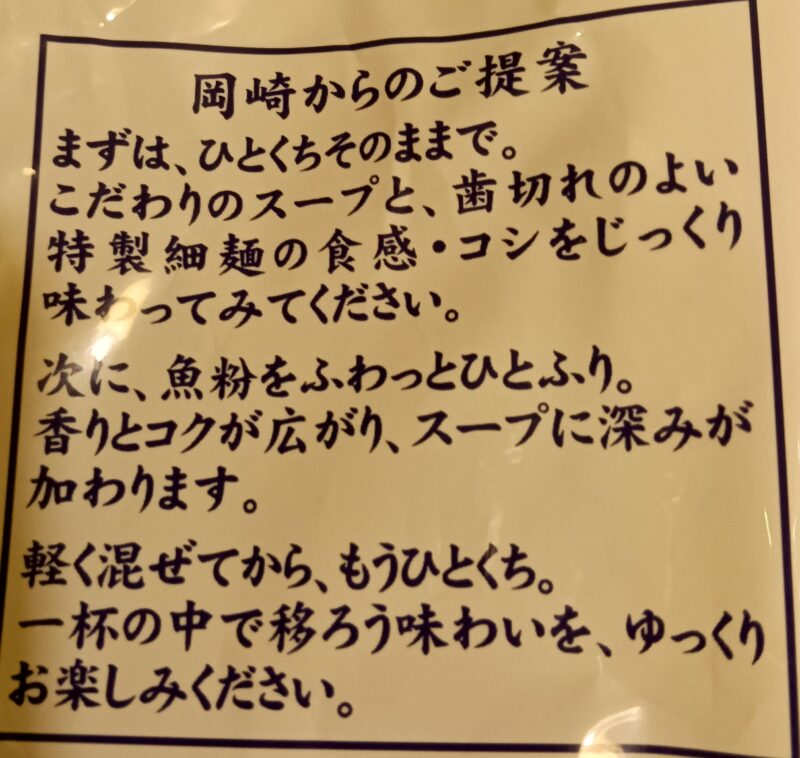 岡崎からのご提案
まずは、ひとくちそのままで。
こだわりのスープと、歯切れのよい
特製細麺の食感・コシをじっくり
味わってみてください。
次に、魚粉をふわっとひとふり。
香りとコクが広がり、スープに深みが
加わります。
軽く混ぜてから、もうひとくち。
一杯の中で移ろう味わいを、ゆっくり
お楽しみください。